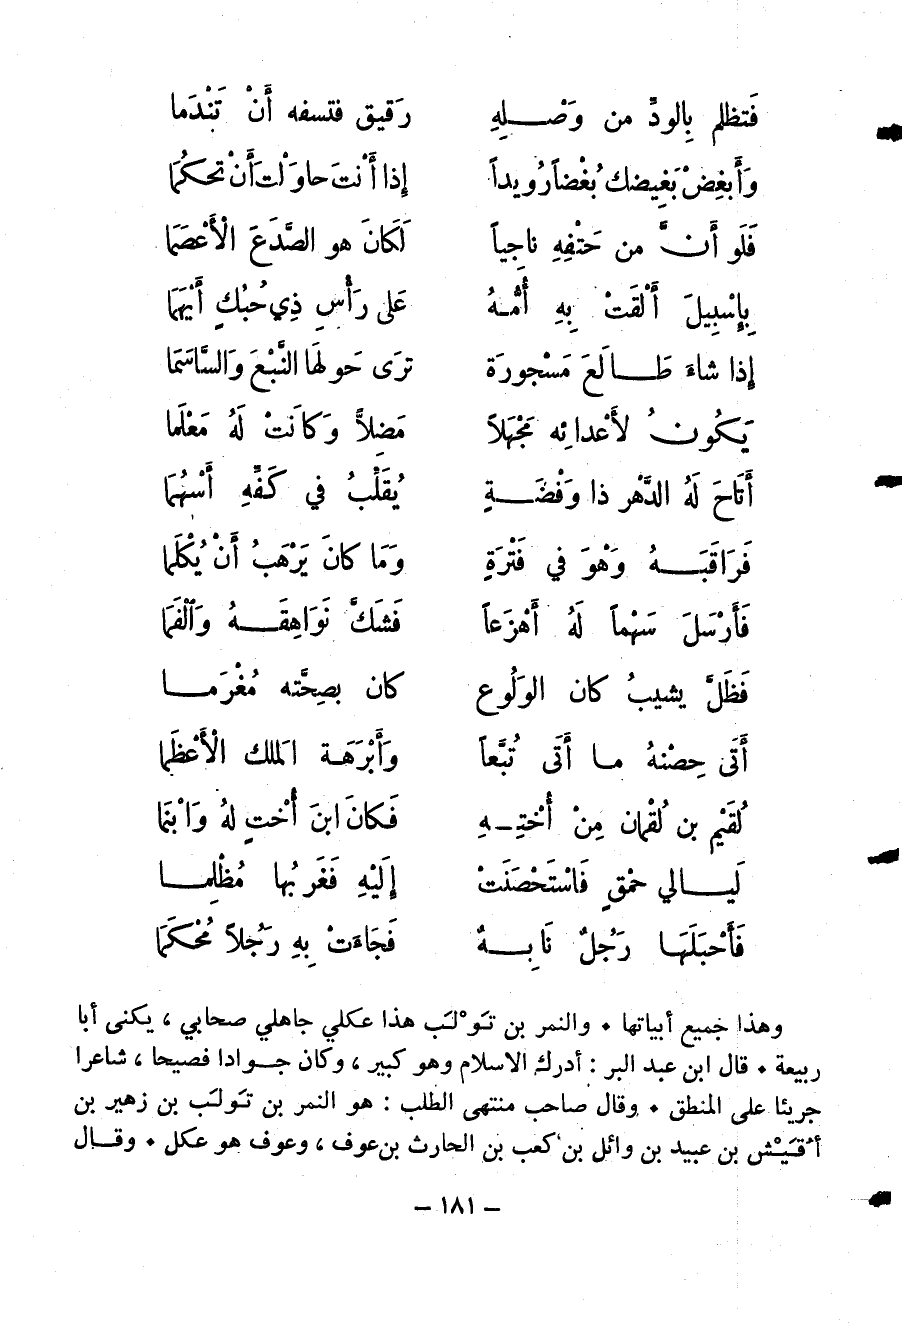 فَتظلم بِالودِّ من وَصْلِهِ رَقيق فتسفه أَنْ تَنْدَما
وَأَبغِضْ بَغِيضك بُغْضاً رُويداً إذا أَنْتَ حاوَلْتَ أَنْ تحكُما
فَلَو أَنَّ من حَتْفِهِ ناجِياً لَكَانَ هو الصَّدَعَ الْأَعْصَما
بِإِسْبِيلَ أَلْقَتْ بِهِ أُمُّهُ عَلى رَأْسِ ذِي حُبُكٍ أَيْهَما
إذا شاءَ طَالَعَ مَسْجورَة ترَى حَولهَا النَّبْعَ وَالسَّاسَما
يَكُونُ لأَعْدائِه مَجْهَلاً مَضِلاًّ وَكَانَتْ لَهُ مَعْلَما
أَتَاحَ لَهُ الدَّهْر ذا وَفْضَةٍ يُقَلْبُ في كَفِّهِ أَسْهُما
فَرَاقَبَهُ وَهْوَ في فَتْرَةٍ وَمَا كانَ يَرْهَبُ أَنْ يُكْلَما
فَأَرْسَلَ سَهْماً لَهُ أَهْزَعاً فَشَكَّ نَوَاهِقَهُ وَالْفَما
فَظَلَّ يشيبُ كان الولُوع كان بصِحَّته مُغْرَما
أَتَى حِصْنهُ ما أَتَى تُبَّعاً وَأَبْرَهَة الملك الْأَعْظَما
لُقَيْم بن لُقْمان مِنْ أُخْتِهِ فَكانَ ابنَ أُخْتٍ لهُ وَابْنَما
لَيالي حمْقٍ فَاسْتَحْصَنَتْ إلَيْهِ فَغَرَّ بُها مُظْلِما
فَأَحْبَلَهَا رَجُلٌ نَابِهٌ فَجَاءَتْ بِهِ رَجُلاً مُحْكَما
وهذا جميع أبياتها ٠ والنمر بن تَوْلَب هذا عكلي جاهلي صحابي ، يكنى أبا
ربيعة ٠ قال ابن عبد البر : أدرك الاسلام وهو كبير ، وكان جوادا فصيحا ، شاعرا
جريئا على المنطق ٠ وقال صاحب منتهى الطلب : هو النمر بن تَولَب بن زهير بن
أُقَيْش بن عبيد بن وائل بن كعب بن الحارث بن عوف ، وعوف هو عكل ٠ وقال
– ١٨١ –